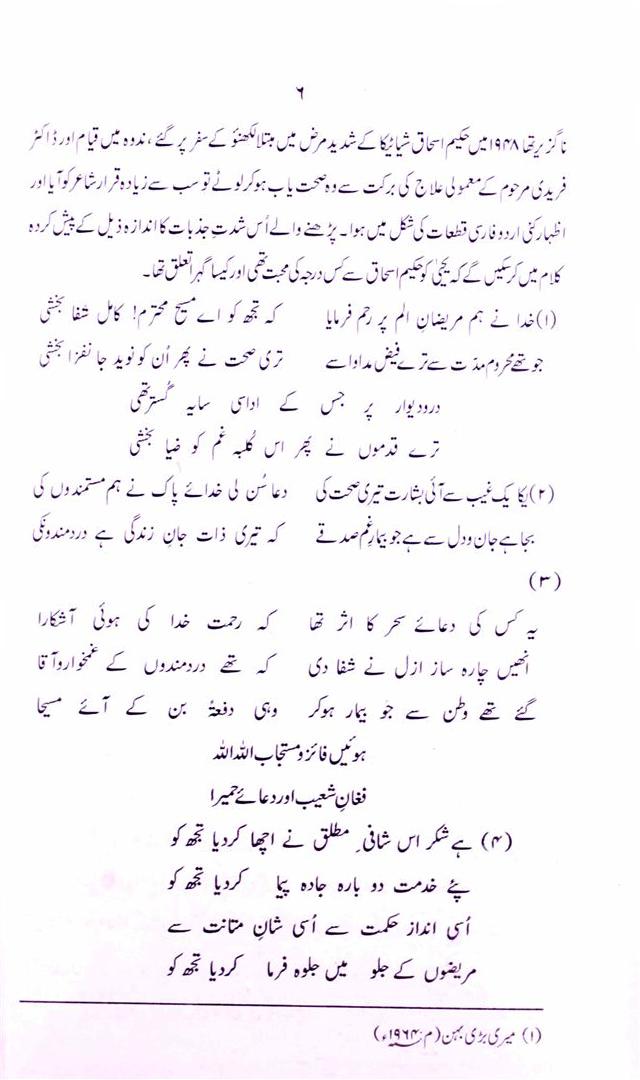 ۶
ناگزیر تھا ۱۹۴۸ میں حکیم اسحاق شیاٹیکا کے شدید مرض میں مبتلا لکھنؤ کے سفر پر گئے، ندوہ میں قیام اور ڈاکٹر
فریدی مرحوم کے معمولی علاج کی برکت سے وہ صحت یاب ہو کر لوٹے تو سب سے زیادہ قرار شاعر کو آیا اور
اظہار کئی اردو فارسی قطعات کی شکل میں ہوا۔ پڑھنے والے اُس شدتِ جذبات کا اندازہ ذیل کے پیش کردہ
کلام میں کر سکیں گے کہ یحییٰ کو حکیم اسحاق سے کس درجہ کی محبت تھی اور کیسا گہرا تعلق تھا۔
(۱) خدا نے ہم مریضانِ الم پر رحم فرمایا کہ تجھ کو اے مسیح محترم! کامل شفا بخشی
جو تھے محروم مدّت سے ترے فیض مداوا سے تری صحت نے پھر اُن کو نوید جانفزا بخشی
درو دیوار پر جس کے اداسی سایہ گُستر تھی
ترے قدموں نے پھر اس کُلبہ غم کو ضیا بخشی
(۲) یکا یک غیب سے آئی بشارت تیری صحت کی دعا سُن لی خدائے پاک نے ہم مستمندوں کی
بجا ہے جان و دل سے ہے جو بیمارِ غم صدقے کہ تیری ذات جانِ زندگی ہے دردمندونکی
(۳)
یہ کس کی دعائے سحر کا اثر تھا کہ رحمت خدا کی ہوئی آشکارا
انھیں چارہ ساز ازل نے شفا دی کہ تھے دردمندوں کے غمخوار و آقا
گئے تھے وطن سے جو بیمار ہوکر وہی دفعۃً بن کے آئے مسیحا
ہوئیں فائز و مستجاب اللہ اللہ
فغانِ شعیب اور دعائے حمیرا
(۴) ہے شکر اس شافیِ مطلق نے اچھا کردیا تجھ کو
پئے خدمت دو بارہ جادہ پیما کردیا تجھ کو
اُسی انداز حکمت سے اُسی شانِ متانت سے
مریضوں کے جلو میں جلوہ فرما کردیا تجھ کو
(۱) میری بڑی بہن (م: ۱۹۶۴ء)